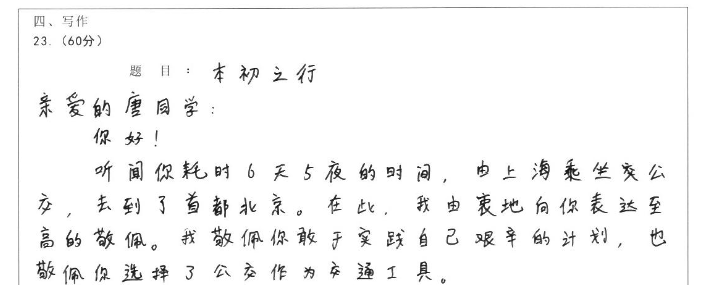 四、写作
23.（60分）
题 目：本初之行
亲爱的唐同学：
你好！
听闻你耗时6天5夜的时间，由上海乘坐交公
交，去到了首都北京。在此，我由衷地向你表达至
高的敬佩。我敬佩你敢于实践自己艰辛的计划，也
敬佩你选择了公交作为交通工具。